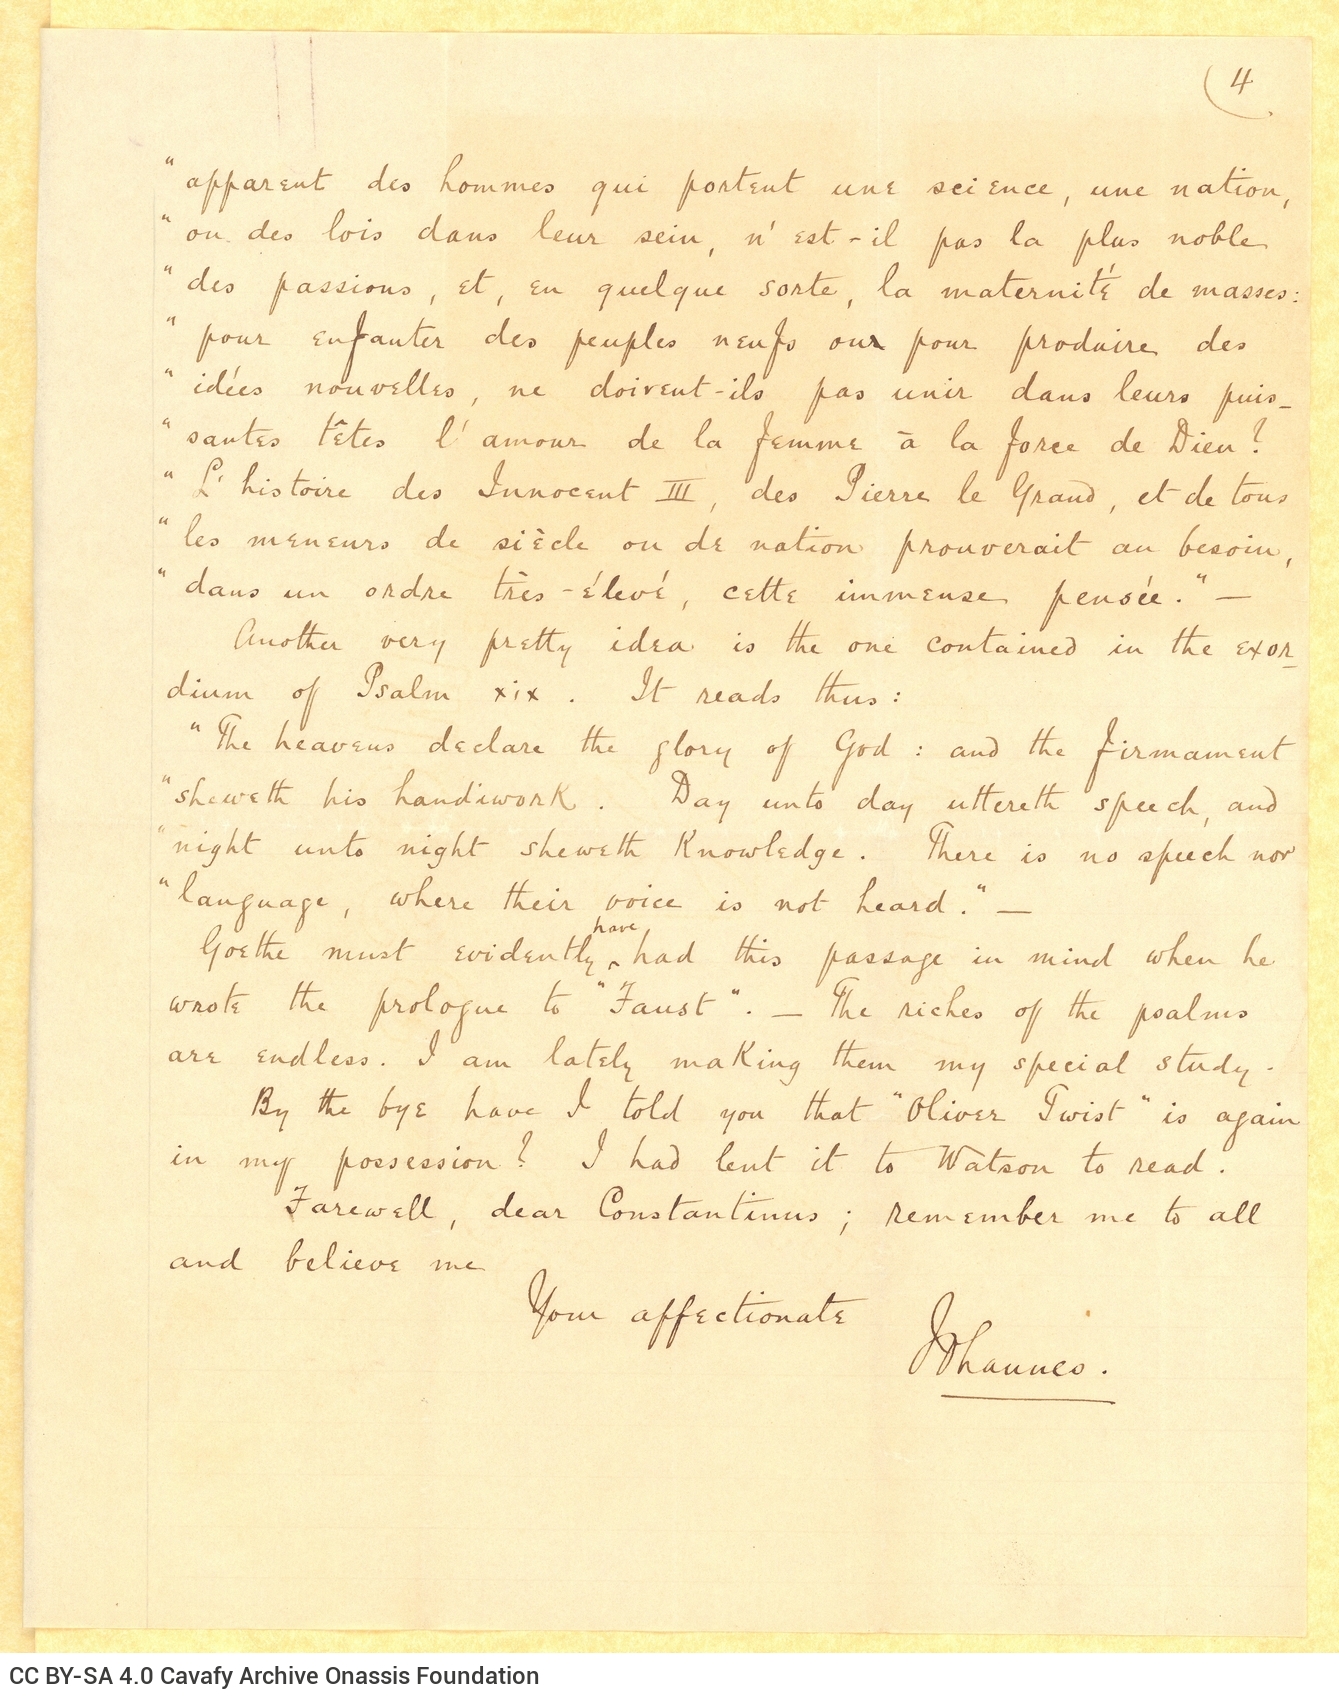 4
" apparent des hommes qui portent une science, une nation,
" ou des lois dans leur sein, n'est-il pas la plus noble
" des passions, et, en quelque sorte, la maternité de masses:
" pour enfanter des peuples neufs our pour produire des
" idées nouvelles, ne doivent-ils pas unir dans leurs puis-
" santes têtes l'amour de la femme à la force de Dieu?
" L'histoire des Innocent III, des Pierre le Grand, et de tous
" les meneurs de siècle ou de nation prouverait au besoin,
" dans un ordre très-élevé, cette immense pensée." —
Another very pretty idea is the one contained in the exor-
dium of Psalm xix. It reads thus:
" The heavens declare the glory of God: and the firmament
" sheweth his handiwork. Day unto day uttereth speech, and
" night unto night sheweth Knowledge. There is no speech nor
" language, where their voice is not heard." —
have
Goethe must evidently ‸ had this passage in mind when he
wrote the prologue to "Faust". — The riches of the psalms
are endless. I am lately making them my special study.
By the bye have I told you that "Oliver Twist" is again
in my possession? I had lent it to Watson to read.
Farewell, dear Constantinus; remember me to all
and believe me
Your affectionate
Johannes.
CC BY-SA 4.0 Cavafy Archive Onassis Foundation